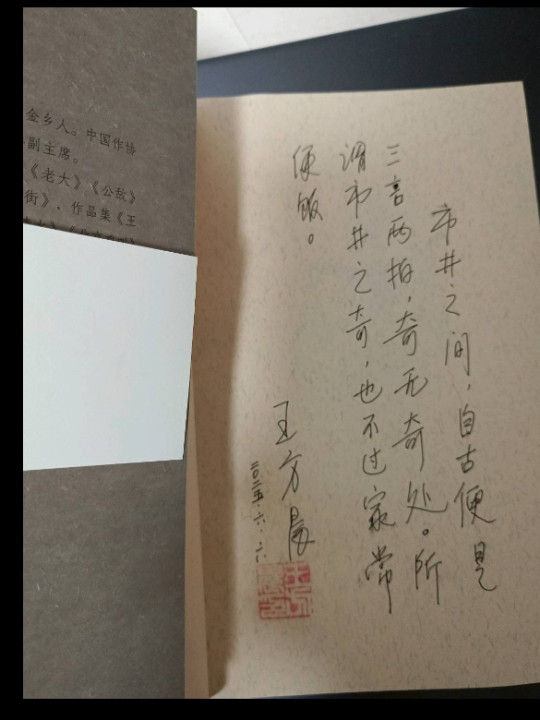 金乡人。中国作协
副主席。
《老大》《公敌》
街》、作品集《王
市井之间，自古便是
三言两拍，奇无奇处。所
谓市井之奇，也不过家常
便饭。
王方晨
二〇二五.六.六